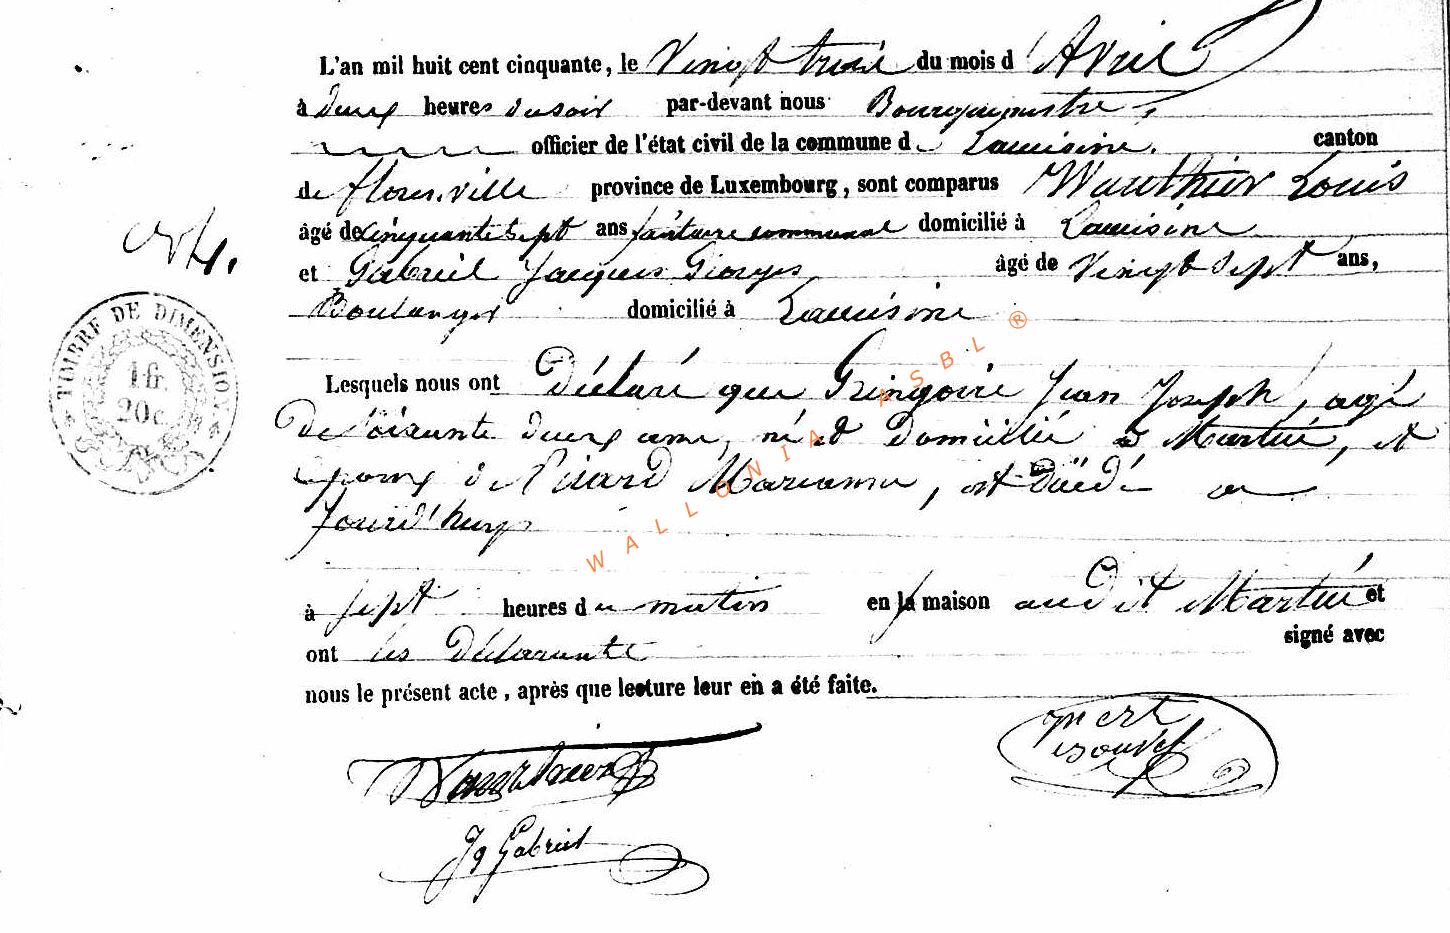 L'an mil huit cent cinquante, le Vingt trois du mois d'Avril
à deux heures du soir par-devant nous Bourguemestre
officier de l'état civil de la commune de Lacuisine. canton
de florenville province de Luxembourg, sont comparus Wauthier Louis
âgé de cinquante sept ans communal domicilié à Lacuisine
et Gabriel Jacques Georges âgé de vingt sept ans,
Boulanger domicilié à Lacuisine
Lesquels nous ont Déclaré que Gringoire Jean Joseph, agé
De soixante deux ans, né et Domicilié à Martué, et
époux de Pierard Marianne, est Décédé au
jourd'huy
à sept heures du matin en la maison audit Martué et
ont les Déclarants signé avec
nous le présent acte, après que lecture leur en a été faite.
TIMBRE DE DIMENSION
1 fr.
20c
Wauthier
Jq Gabriel
WALLONIA ASBL ®